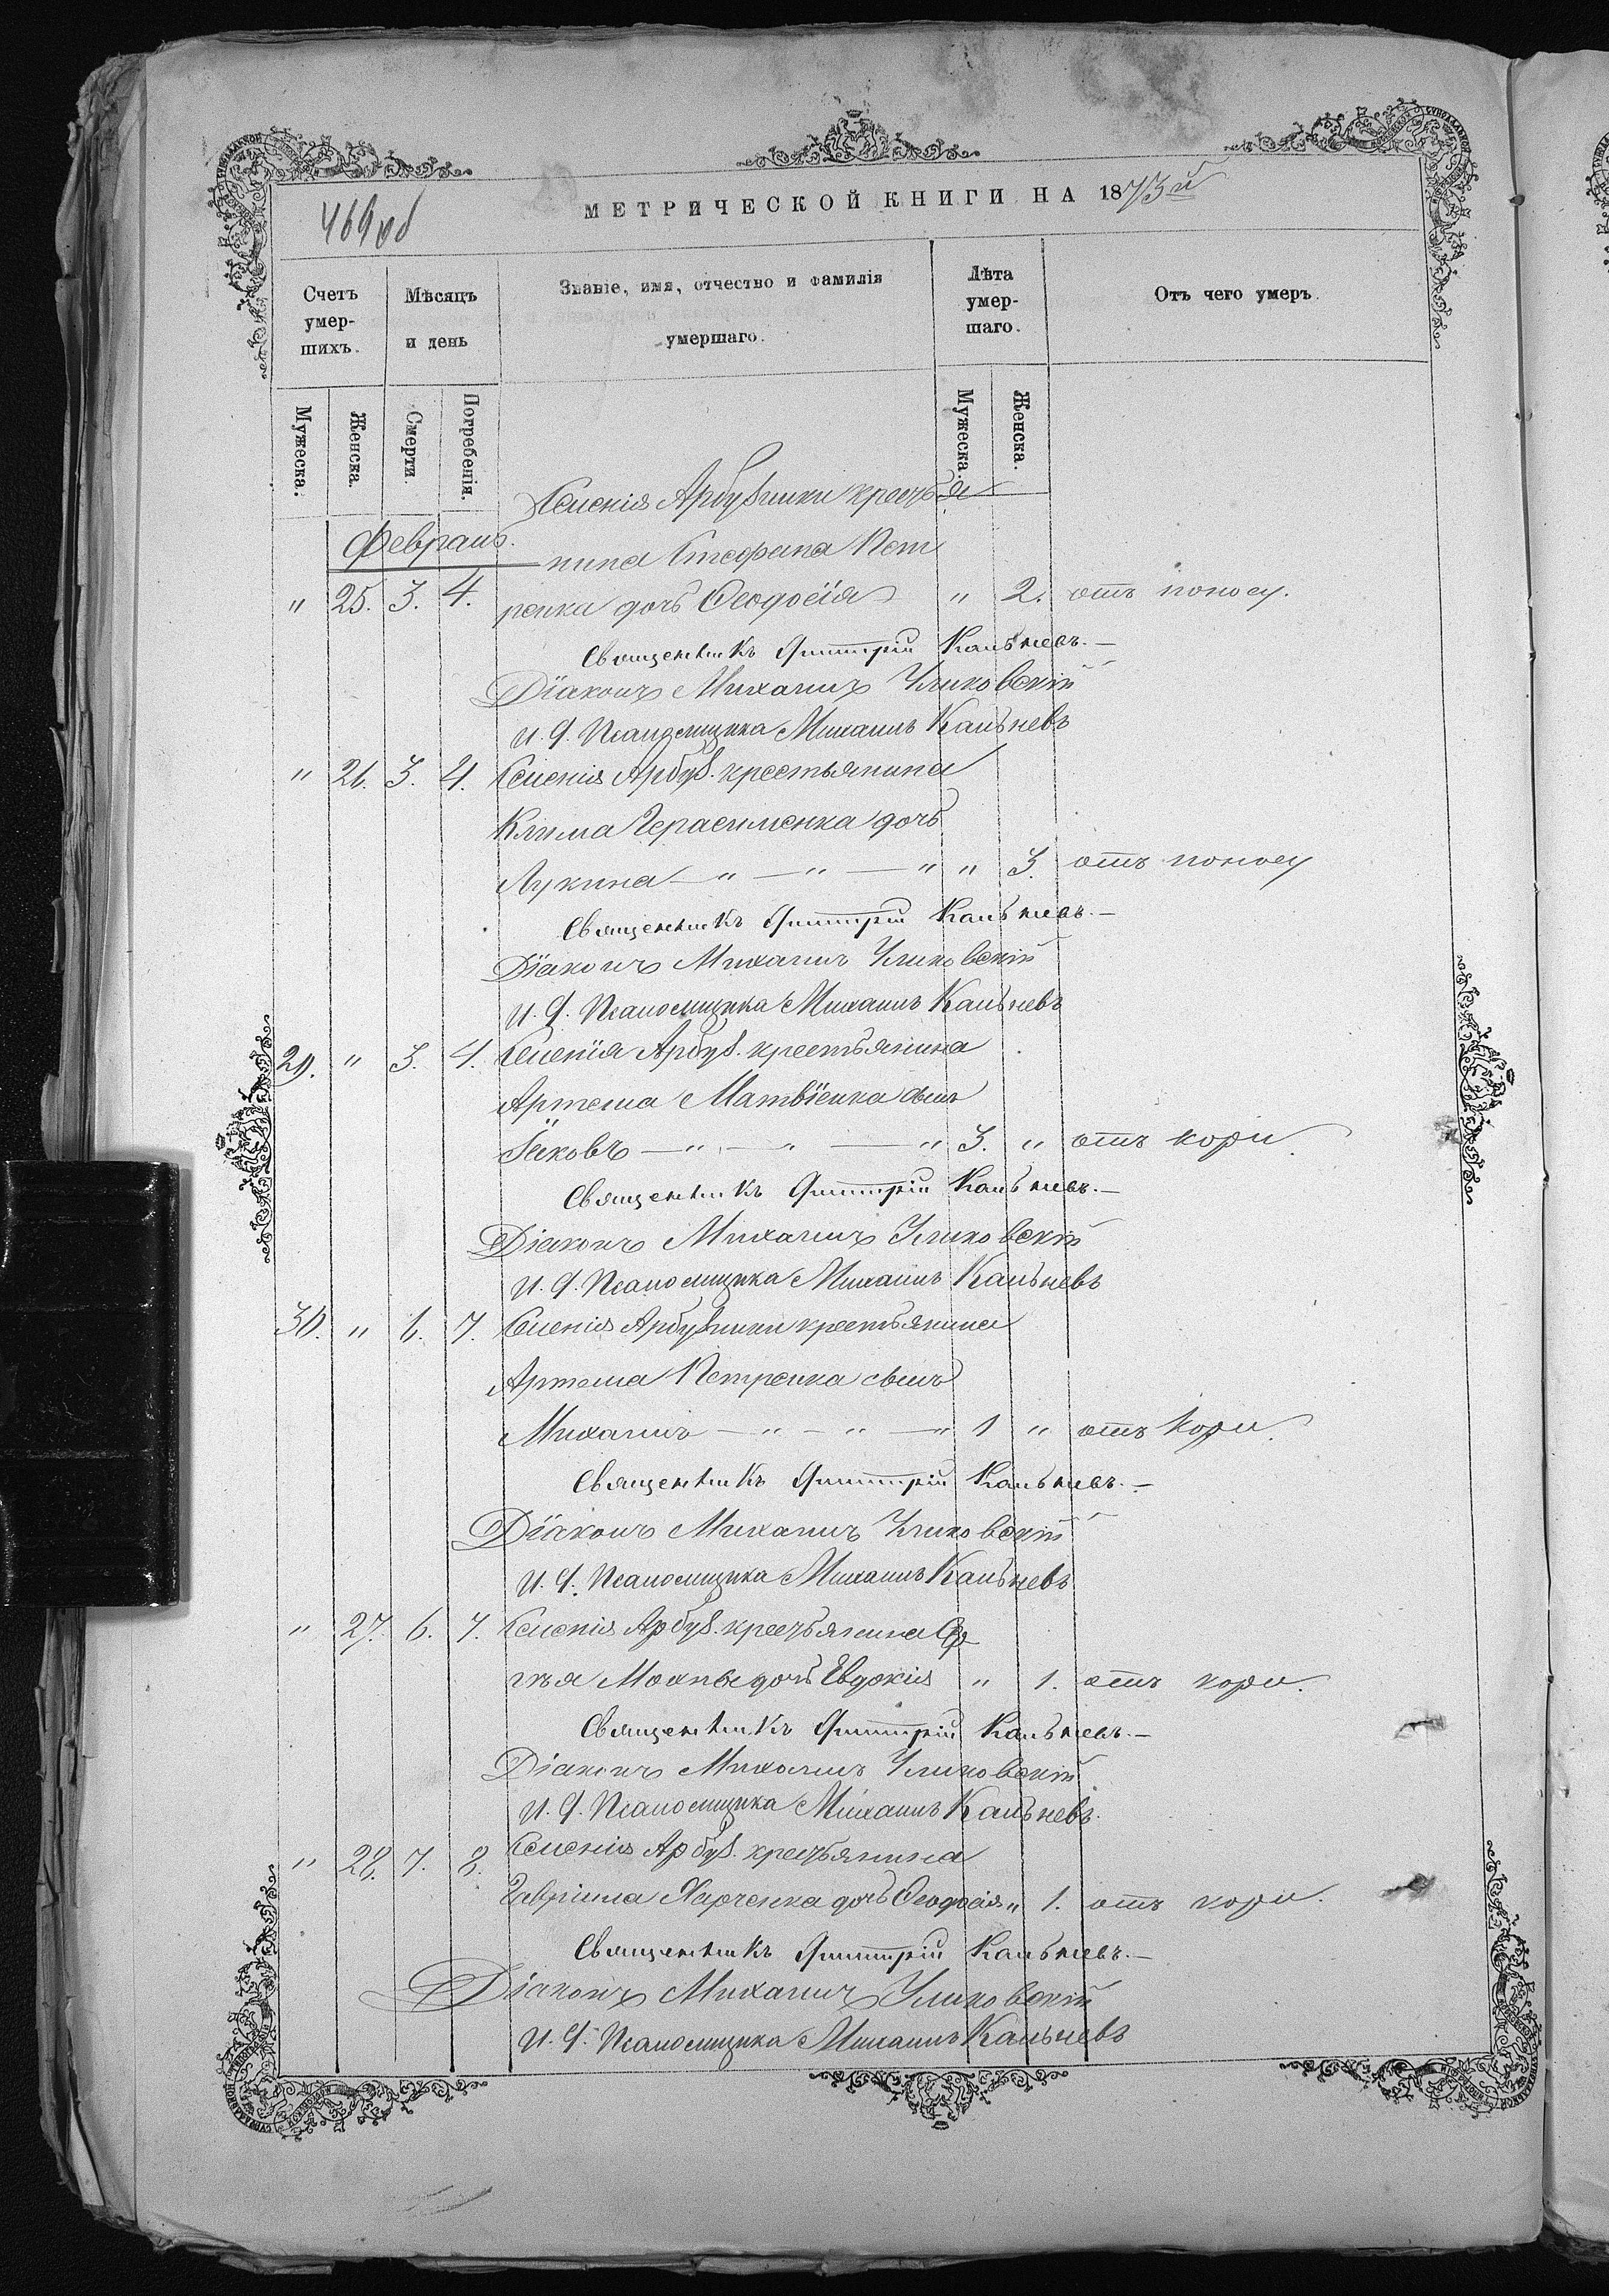 469 об
МЕТРИЧЕСКОЙ КНИГИ НА 1873й
Счетъ умер-шихъ.
Мѣсяцъ и день
Званіе, имя, отчество и фамилія
умершаго.
Лѣта умер-шаго.
Отъ чего умеръ.
Мужеска. Женска. Смерти. Погребенія. Мужеска. Женска.
Селенія Арбузинки кресть я
Февраль. нина Стефана Пет
" 25. 3. 4. ренка дочь Ѳеодосія " 2. отъ поносу.
Священникъ Димитрій Кальневъ.—
Діаконъ Михаилъ
И. д. Псаломщика Михаилъ Кальневъ
" 26. 3. 4. Селенія Арбуз. крестьянина
Клима Герасименка дочь
Лукина — " — " — " " 3. отъ поносу
Священникъ Димитрій Кальневъ.—
Діаконъ Михаилъ
И. д. Псаломщика Михаилъ Кальневъ
29. " 3. 4. Селенія Арбуз. крестьянина
Артема Матвіенка сынъ
Іаковъ — " — " — " 3. " отъ кори.
Священникъ Димитрій Кальневъ.—
Діаконъ Михаилъ
И. д. Псаломщика Михаилъ Кальневъ
30. " 6. 7. Селенія Арбузинки крестьянина
Артема Петренка сынъ
Михаилъ — " — " — " 1 " отъ кори.
Священникъ Димитрій Кальневъ.—
Діаконъ Михаилъ
И. д. Псаломщика Михаилъ Кальневъ
" 27. 6. 7. Селенія Арбуз. крестьянина
дочь Евдокія " 1. отъ кори.
Священникъ Димитрій Кальневъ.—
Діаконъ Михаилъ
И. д. Псаломщика Михаилъ Кальневъ.
" 28. 7. 8. Селенія Арбуз. крестьянина
Гавріила Харченка дочь Ѳеодосія " 1. отъ кори.
Священникъ Димитрій Кальневъ.—
Діаконъ Михаилъ
И. д. Псаломщика Михаилъ Кальневъ